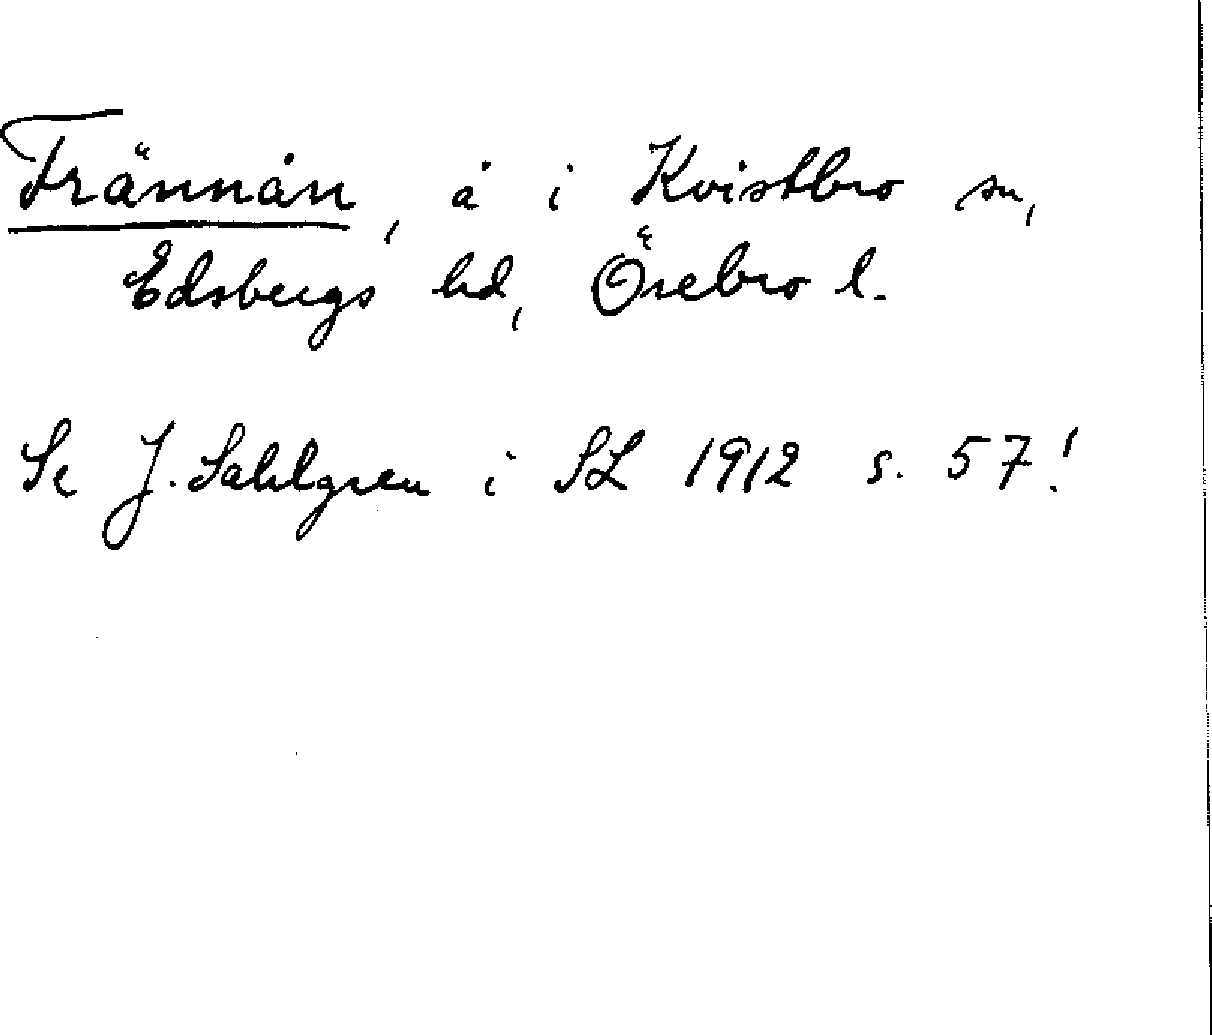 Frännån, å i Kvistbro sn,
Edsbergs hd, Örebro l.
Se J. Sahlgren i SL 1912 s. 57!